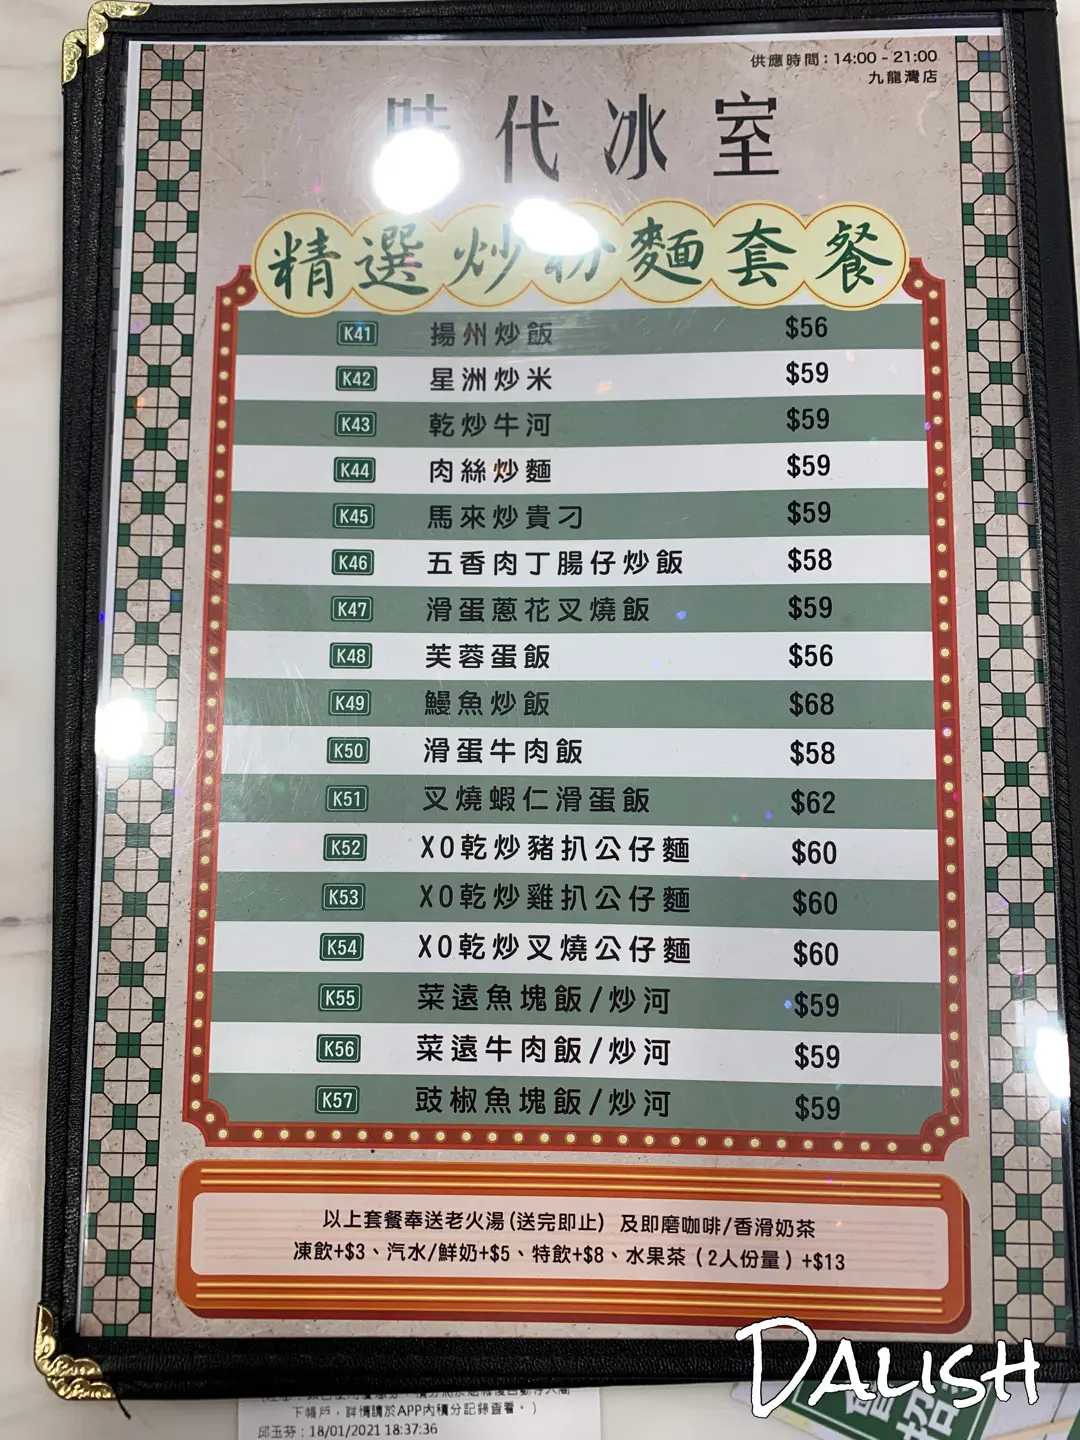 供應時間：14:00 - 21:00
九龍灣店
時代冰室
精選炒粉麵套餐
K41 揚州炒飯 $56
K42 星洲炒米 $59
K43 乾炒牛河 $59
K44 肉絲炒麵 $59
K45 馬來炒貴刁 $59
K46 五香肉丁腸仔炒飯 $58
K47 滑蛋蔥花叉燒飯 $59
K48 芙蓉蛋飯 $56
K49 鰻魚炒飯 $68
K50 滑蛋牛肉飯 $58
K51 叉燒蝦仁滑蛋飯 $62
K52 XO乾炒豬扒公仔麵 $60
K53 XO乾炒雞扒公仔麵 $60
K54 XO乾炒叉燒公仔麵 $60
K55 菜遠魚塊飯/炒河 $59
K56 菜遠牛肉飯/炒河 $59
K57 豉椒魚塊飯/炒河 $59
以上套餐奉送老火湯(送完即止) 及即磨咖啡/香滑奶茶
凍飲+$3、汽水/鮮奶+$5、特飲+$8、水果茶（2人份量）+$13
下帳戶，詳情請於APP內積分記錄查看。)
邱玉芬：18/01/2021 18:37:36
DALISH